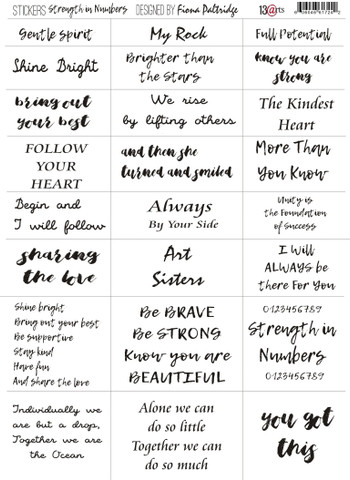 STICKERS Strength in Numbers DESIGNED BY Fiona Paltridge 13@rts
Gentle Spirit
My Rock
Full Potential
Shine Bright
Brighter than
the Stars
Know you are
strong
bring out
your best
We rise
by lifting others
The Kindest
Heart
FOLLOW
YOUR
HEART
and then she
turned and smiled
More Than
You Know
Begin and
I will follow
Always
By Your Side
Unity is
the Foundation
of Success
sharing
the love
Art
Sisters
I Will
ALWAYS be
there For You
Shine bright
Bring out your best
Be supportive
Stay kind
Have fun
And share the love
Be BRAVE
Be STRONG
Know you are
BEAUTIFUL
0123456789
Strength in
Numbers
0123456789
Individually we
are but a drop,
Together we are
the Ocean
Alone we can
do so little
Together we can
do so much
you got
this